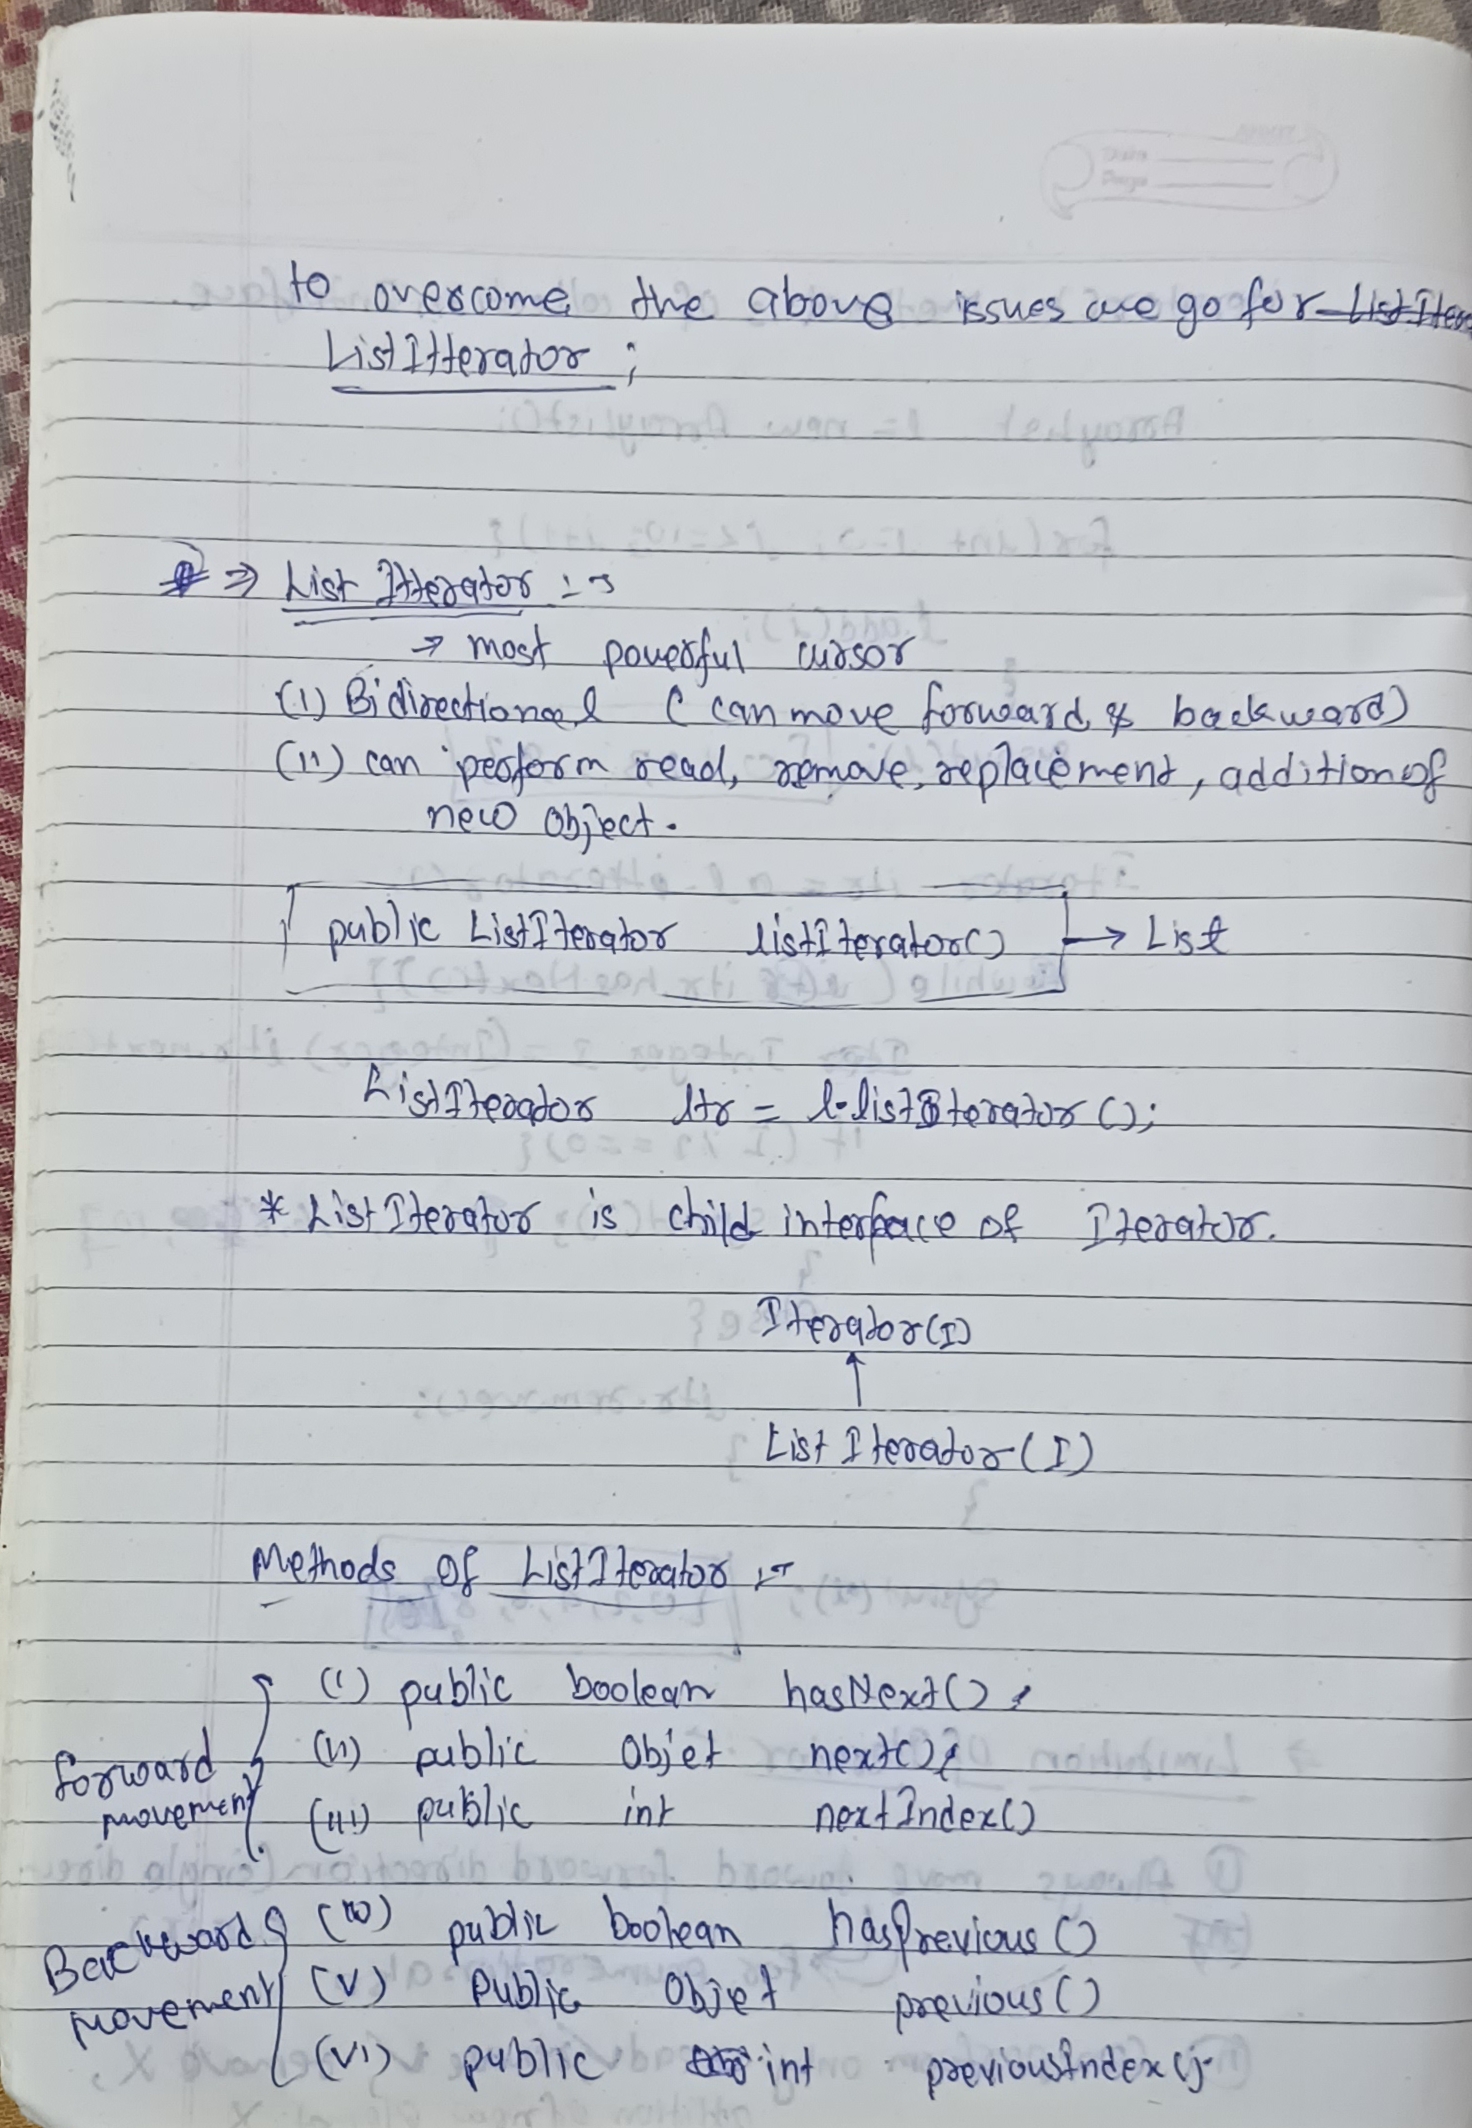 to overcome the above issues we go for ListIter
ListItterator ;
⇒ List Itterator :-
→ most powerful cursor
(i) Bidirectional ( can move forward & backward)
(ii) can perform read, remove, replacement, addition of
new object.
public ListIterator listIterator() → List
ListIterator ltr = l.listIterator();
* ListIterator is child interface of Iterator.
Iterator(I)
↑
ListIterator(I)
Methods of ListIterator :-
forward movement
(i) public boolean hasNext();
(ii) public Objet next();
(iii) public int nextIndex()
Backward movement
(iv) public boolean hasPrevious()
(v) public Objet previous()
(vi) public int previousIndex()